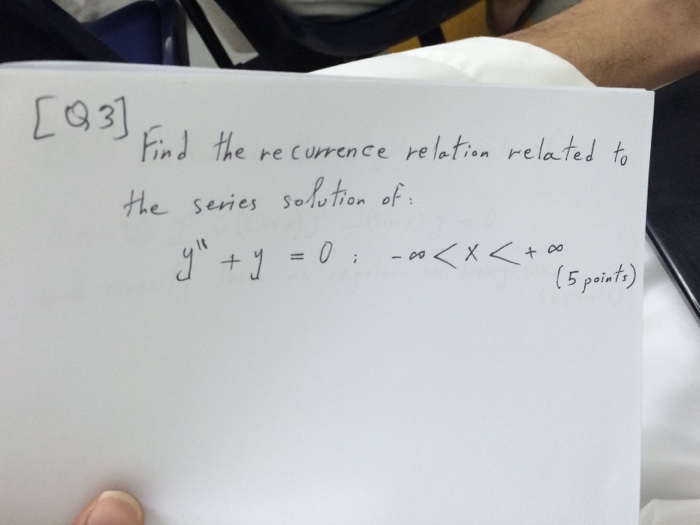 [Q3]
Find the recurrence relation related to
the series solution of:
y" + y = 0 ; -∞ < x < +∞
(5 points)